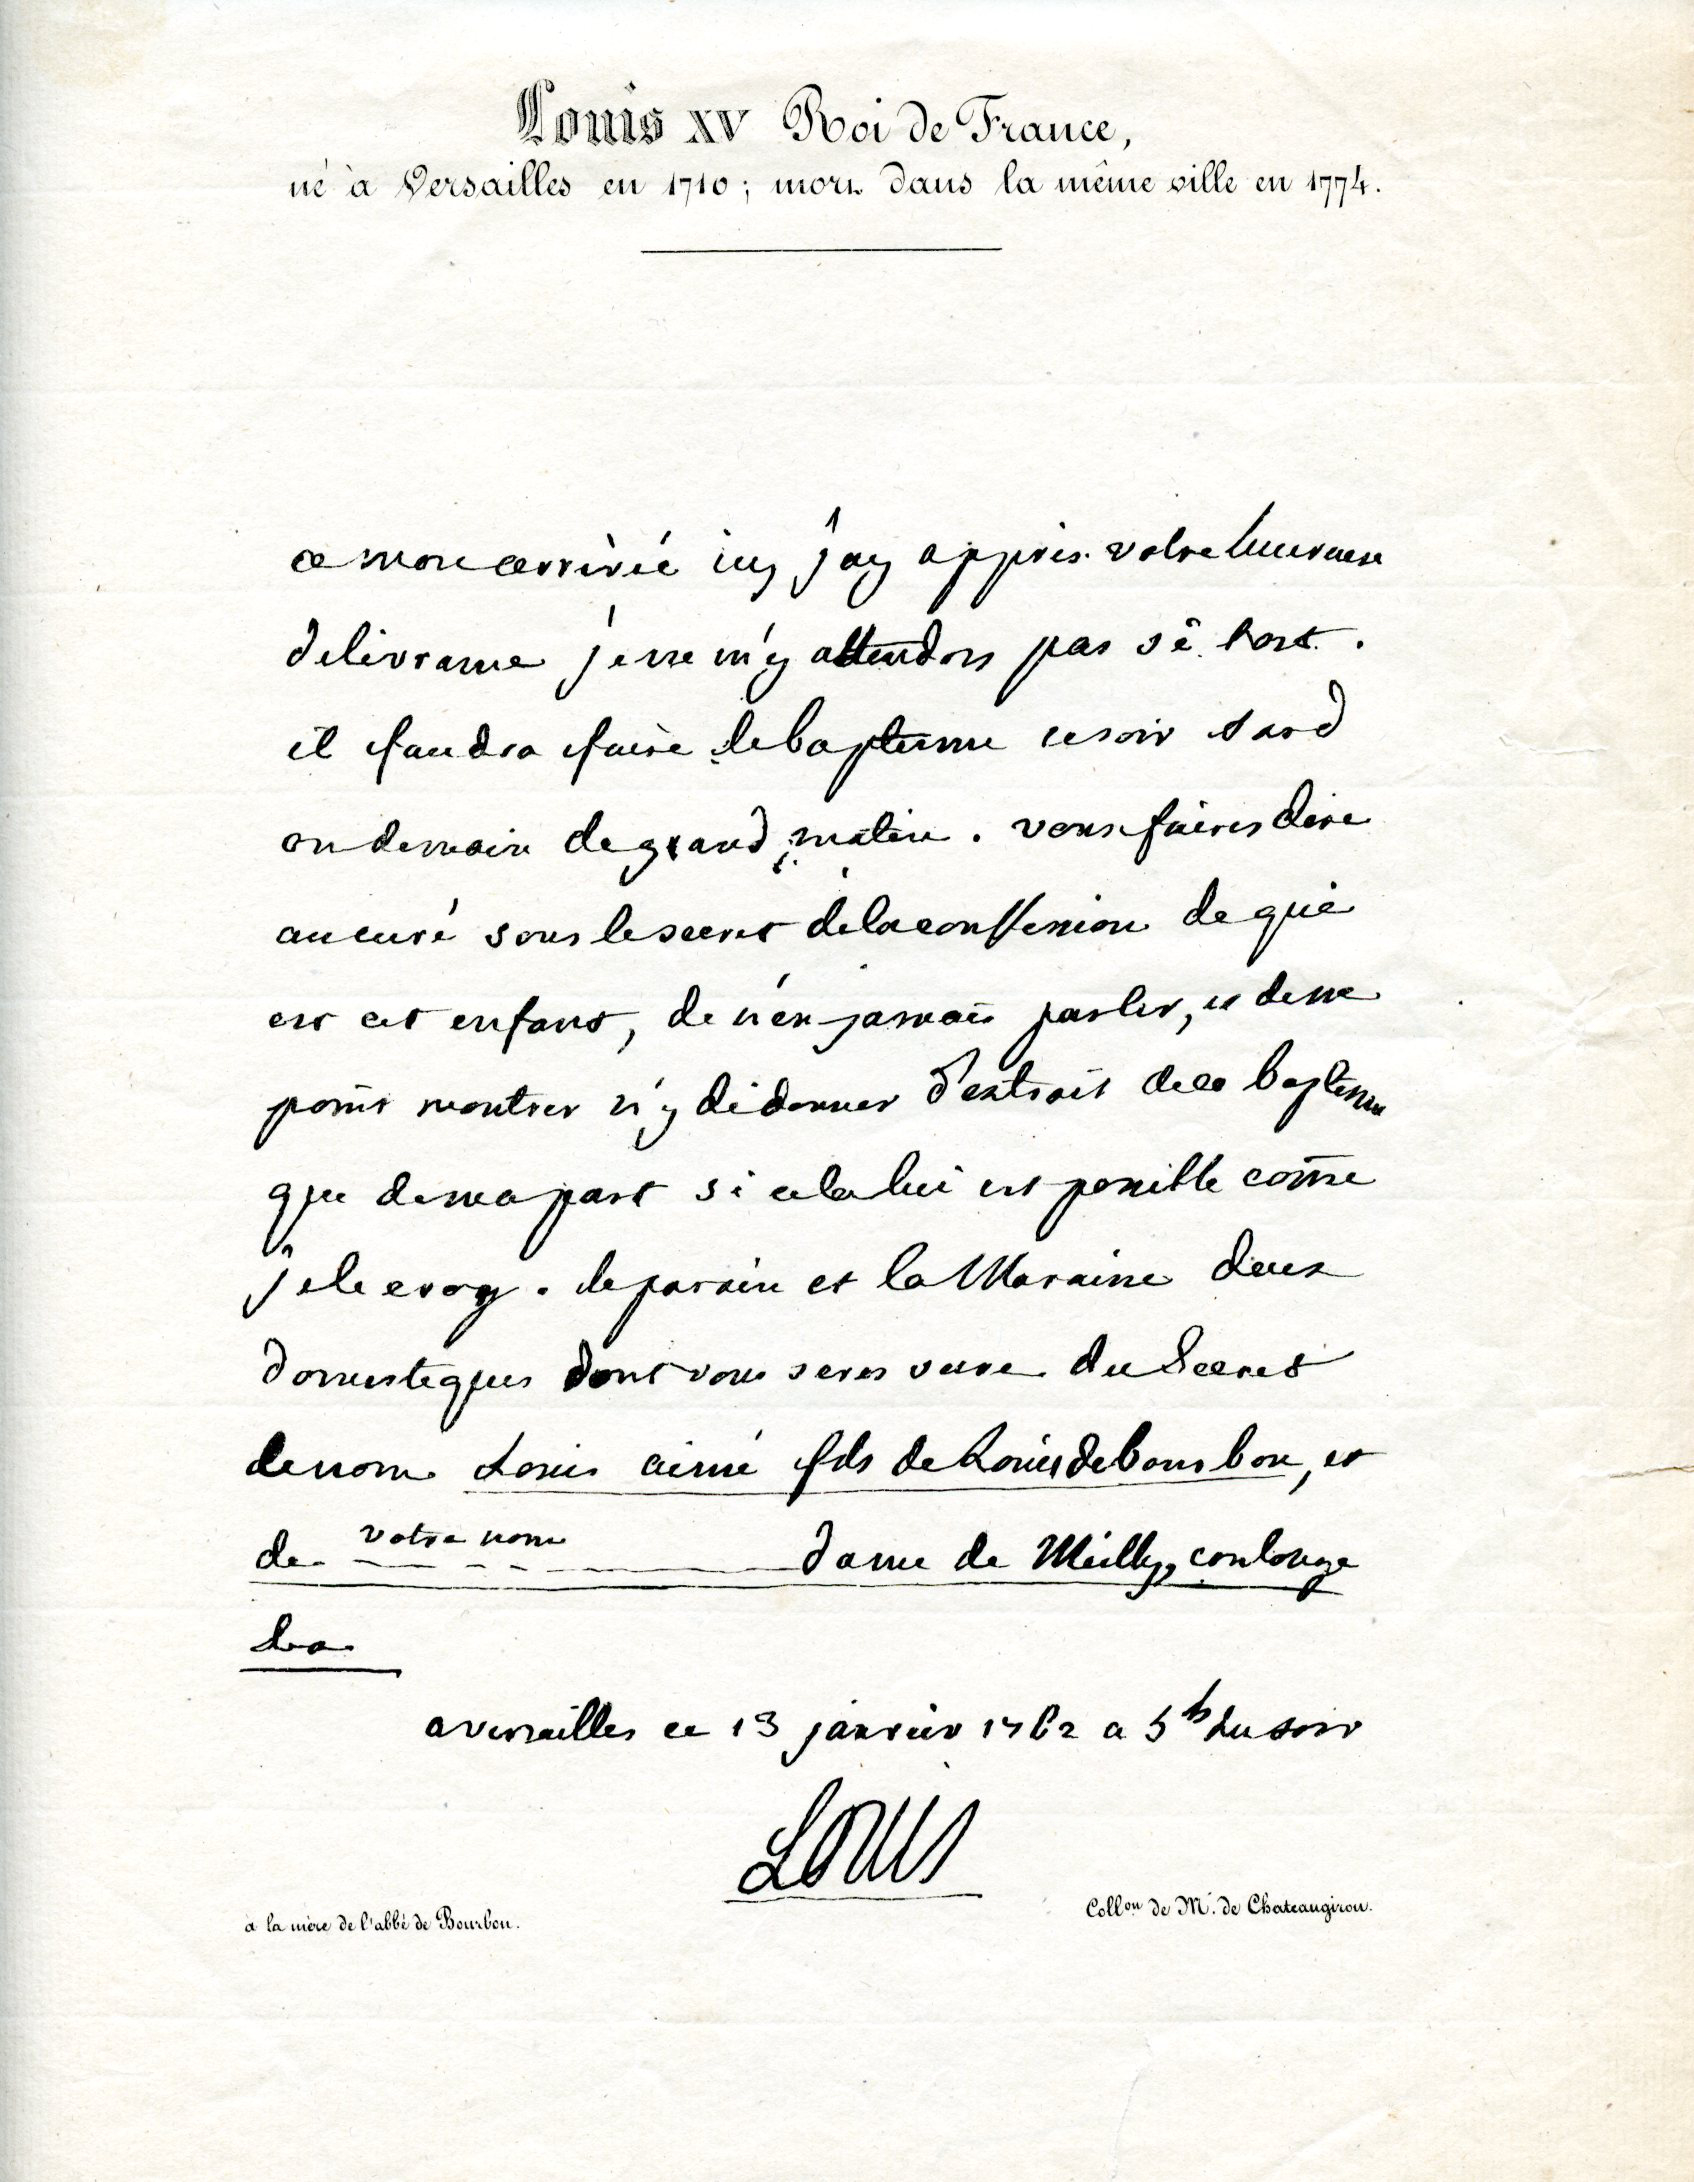 Louis XV Roi de France,
né à Versailles en 1710; mort dans la même ville en 1774.
a mon arrivée icy j'ay appris votre heureuse
delivrance je ne m'y attendois pas si tost.
il faudra faire le baptesme ce soir tard
ou demain de grand matin. vous faires dire
au curé sous le secret de la conffession de qui
est cet enfant, de n'en jamais parler, et de ne
point montrer n'y de donner d'extrait de ce baptesme
que de ma part si cela lui est possible come
je le croy. le parain et la Maraine deux
domestiques dont vous seres seure du Secret
le nom Louis aimé fils de Louis de bourbon, et
de votre nom dame de Meilly, coulonge
la
a versailles ce 13 janvier 1762 a 5h du soir
Louis
à la mère de l'abbé de Bourbon.
Collon de Mr. de Chateaugiron.